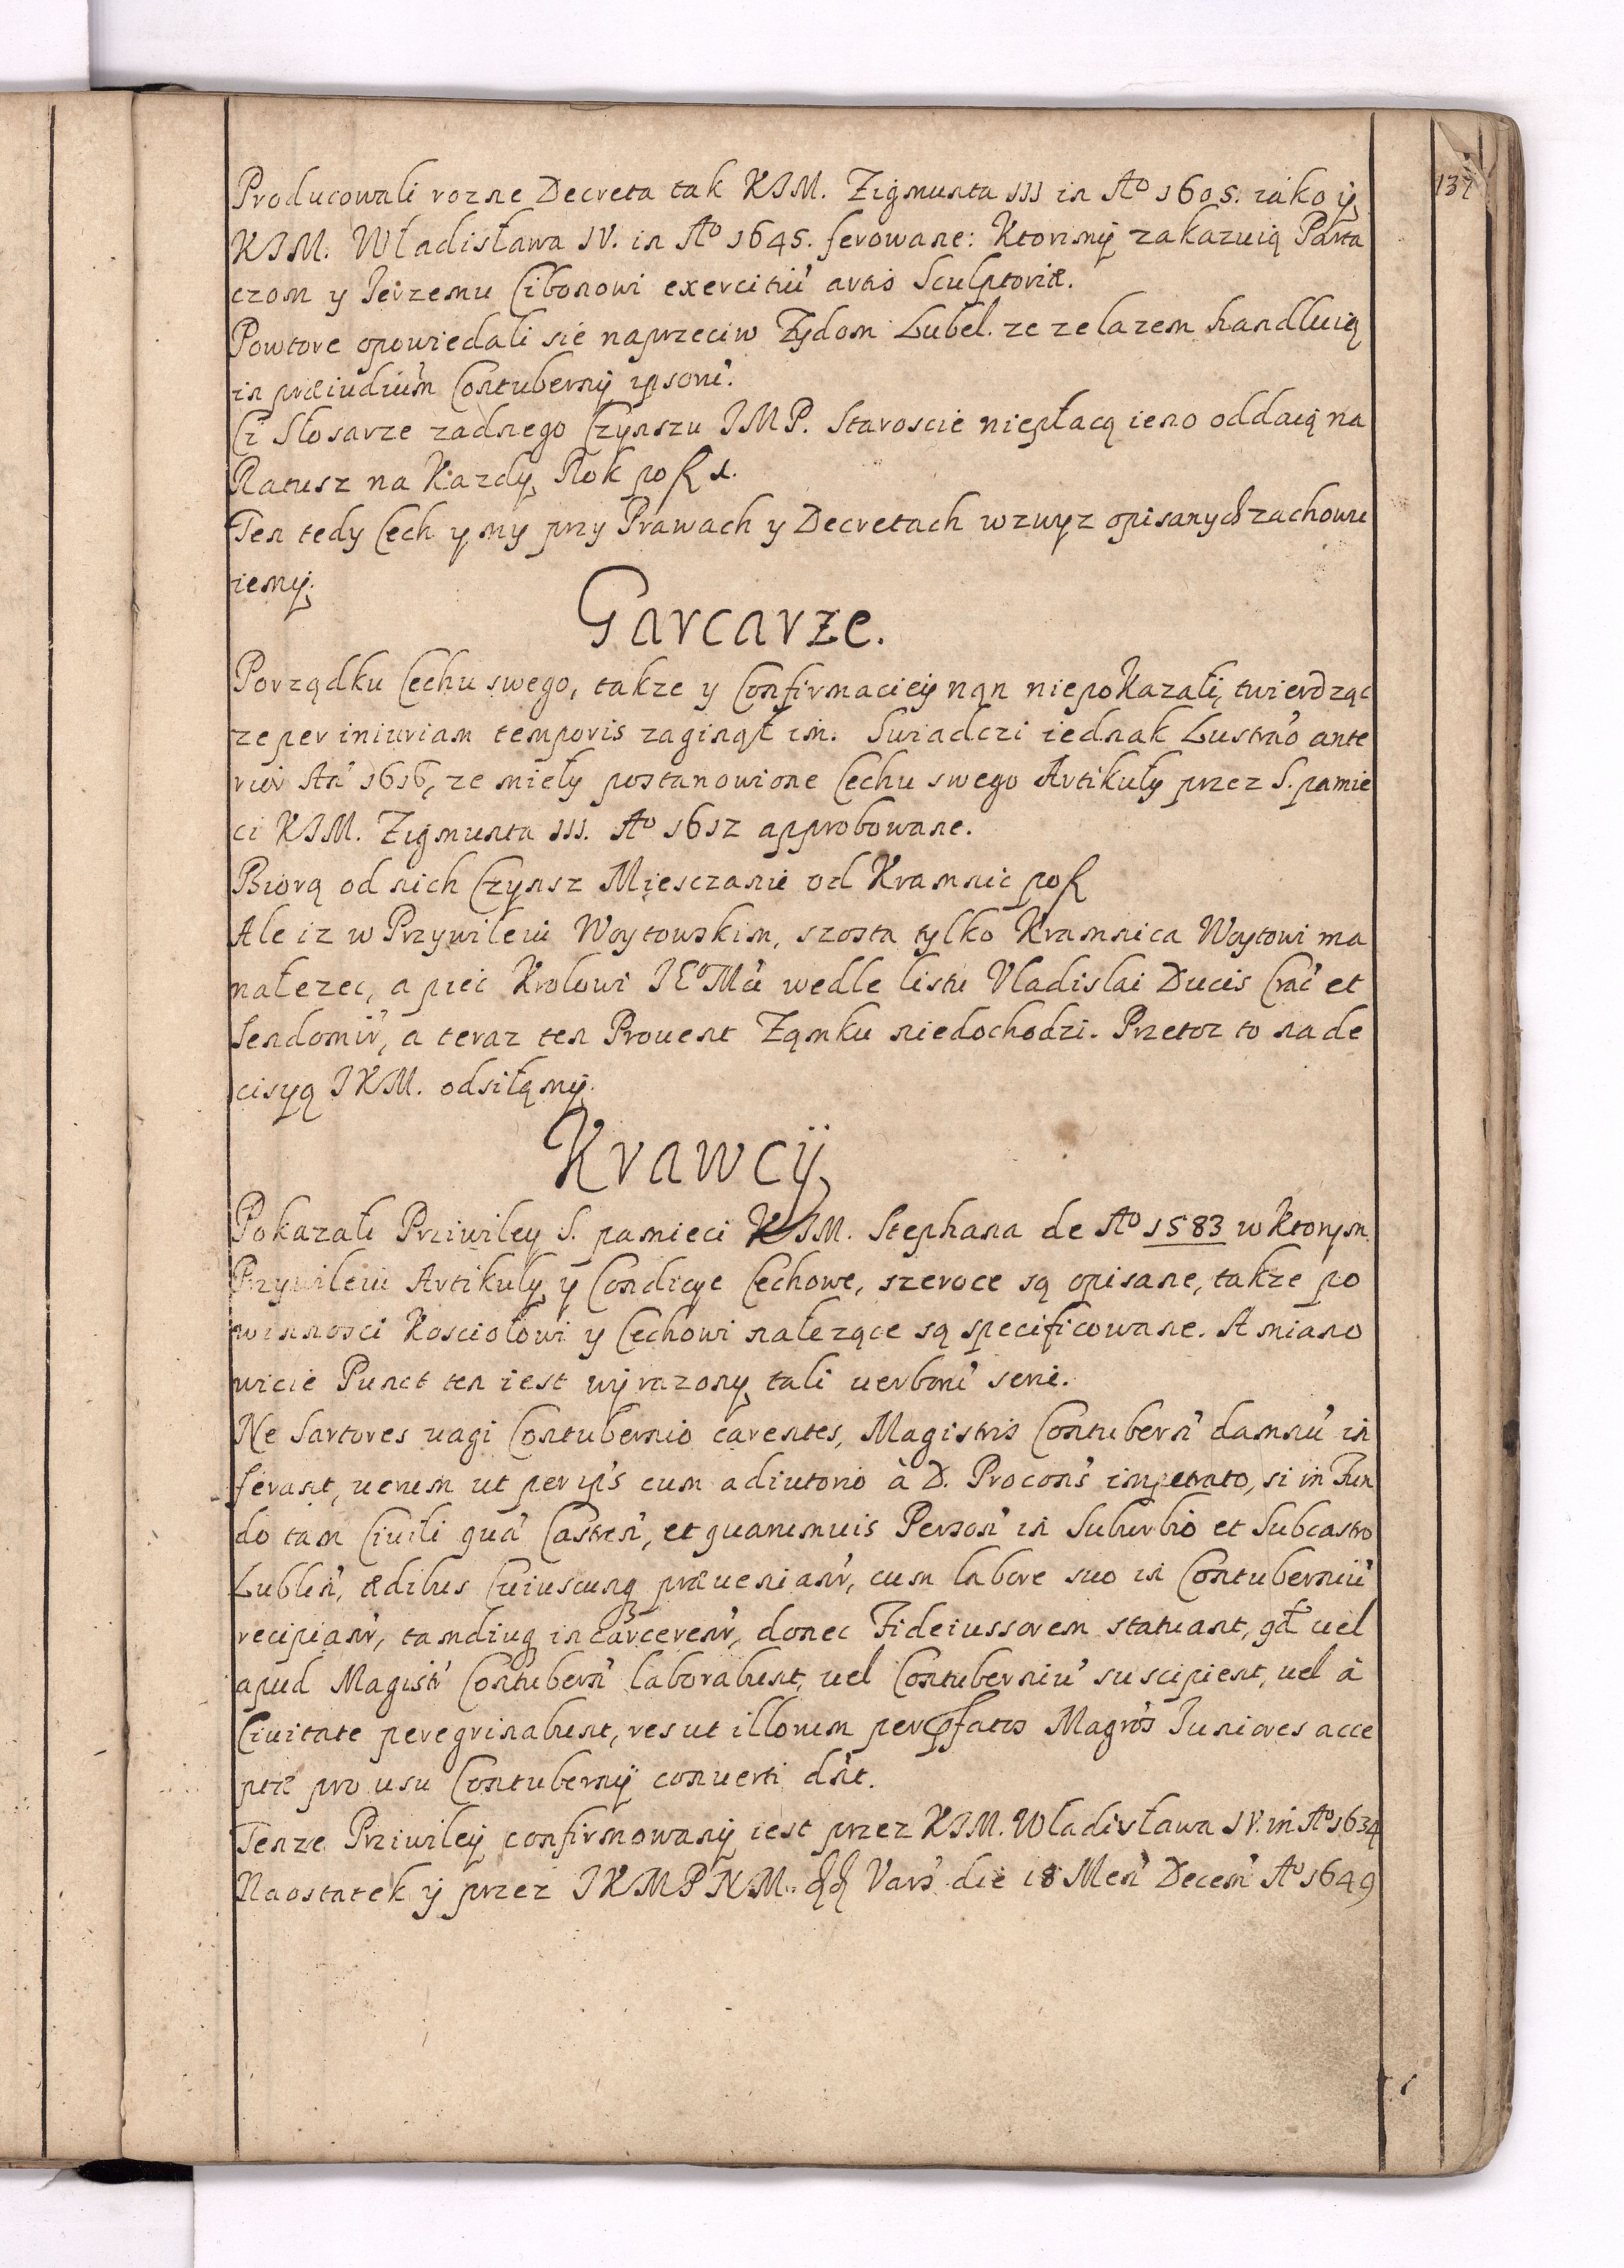 137
Producowali rozne Decreta tak KJM. Zigmunta III in Aº 1605. iako y
KJM. Władisława IV. in Aº 1645. ferowane: Ktorimÿ zakazuią Parta
czom y Jerzemu Cibonowi exercitiu' artis Sculptoriæ.
Powtore opowiedali się naprzeciw Zydom Lubel. ze zelazem handluią
in præiudium Contubernÿ ipsoru'.
Ci Slosarze zadnego Czynszu JMP. Staroscie niepłacą ieno oddaią na
Ratusz na Kazdy Rok po f 1.
Ten tedy Cech y my przy Prawach y Decretach wzwyz opisanych zachowu
iemy.
Garcarze.
Porządku Cechu swego, takze y Confirmaciey nąn niepokazali, twierdząc
ze per iniuriam temporis zaginął im. Swiadczi iednak Lustra'o ante
rior An' 1616, ze mieły postanowione Cechu swego Artikuły przez S. pamie
ci KJM. Zigmunta III. Aº 1612 approbowane.
Biorą od nich Czynsz Miesczanie od Kramnic po f
Ale iz w Przywileiu Woytowskim, szosta tylko Kramnica Woytowi ma
nałezec, a pięc Krolowi JEºMci wedle listu Vladislai Ducis Crac' et
Sendomir', a teraz ten Prouent Ząmku niedochodzi. Przetoz to na de
cisyą JKM. odsiłąmy.
Krawcÿ
Pokazali Priwiley S. pamieci KJM. Stephana de Aº 1583 w ktorym
Przywileiu Artikuly y Condicye Cechowe, szeroce są opisane, takze po
winnosci Kosciołowi y Cechowi nałezące są specificowane. A miano
wicie Punct ten iest wÿrazony tali uerboru' serie.
Ne Sartores uagi Contubernio carentes, Magistris Contubern' damnu' in
ferant, uerum ut per ip's cum adiutorio à D. Procons' impetrato, si in Fun
do tam Ciuili qua' Castren', et quarumuis Person' in Suburbio et Subcastro
Lublin', ædibus Cuiuscunq præueniant'r, cum labore suo in Contuberniu'
recipiant'r, tamdiuq incarcerent'r, donec Fideiussorem statuant, qd uel
apud Magistr' Contubern' laborabunt, uel Contuberniu' suscipient, uel à
Ciuitate peregrinabunt, res ut illorum per pfatos Magro's Juniores acce
ptæ pro usu Contubernÿ conuerti d'nt.
Tenze Priwiley confirmowanÿ iest przez KJM. Władisława IV. in Aº 1634
Naostatek ÿ przez JKMPNM. Vars' die 18 Men' Decem' Aº 1649